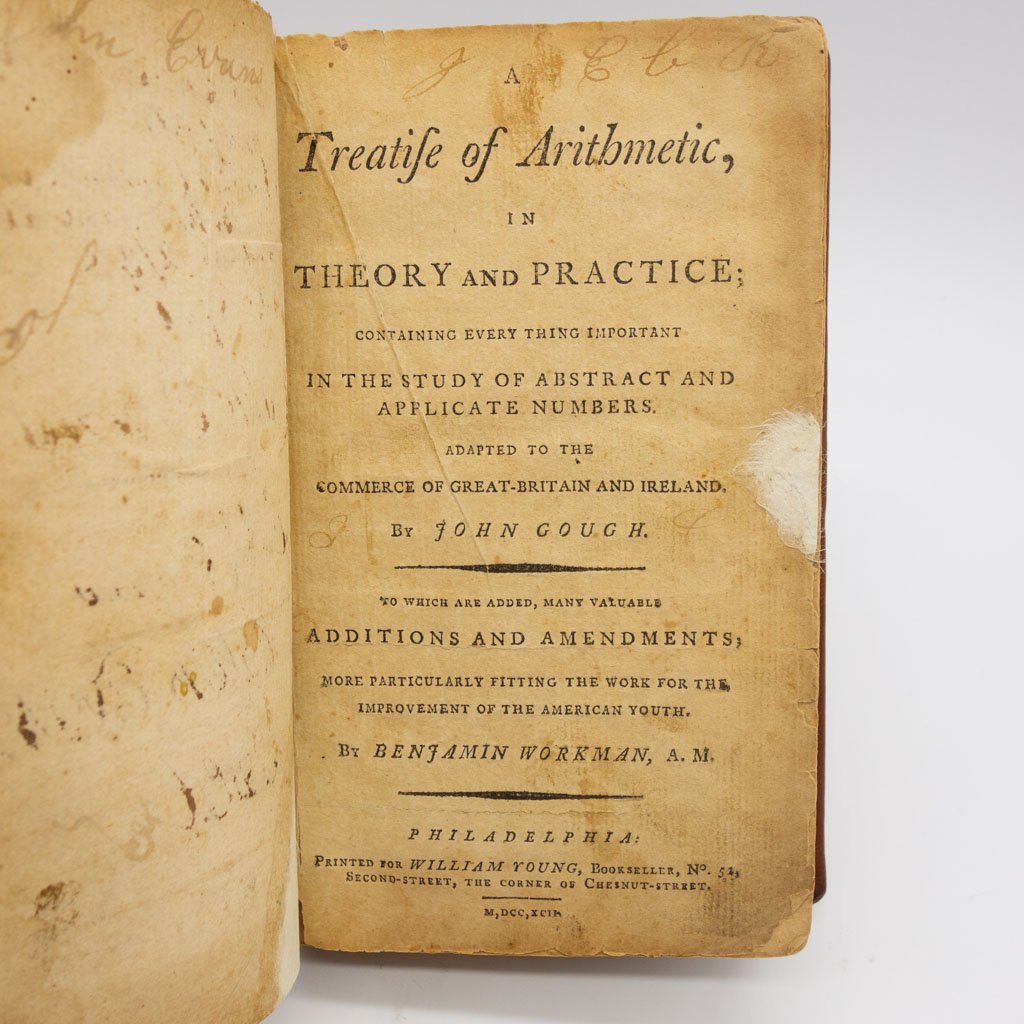 Evans
J E C R
A
Treatiſe of Arithmetic,
IN
THEORY AND PRACTICE;
CONTAINING EVERY THING IMPORTANT
IN THE STUDY OF ABSTRACT AND
APPLICATE NUMBERS.
ADAPTED TO THE
COMMERCE OF GREAT-BRITAIN AND IRELAND.
By JOHN GOUGH.
TO WHICH ARE ADDED, MANY VALUABLE
ADDITIONS AND AMENDMENTS;
MORE PARTICULARLY FITTING THE WORK FOR THE
IMPROVEMENT OF THE AMERICAN YOUTH.
By BENJAMIN WORKMAN, A. M.
PHILADELPHIA:
PRINTED FOR WILLIAM YOUNG, BOOKSELLER, No. 52,
SECOND-STREET, THE CORNER OF CHESNUT-STREET.
M,DCC,XCII.